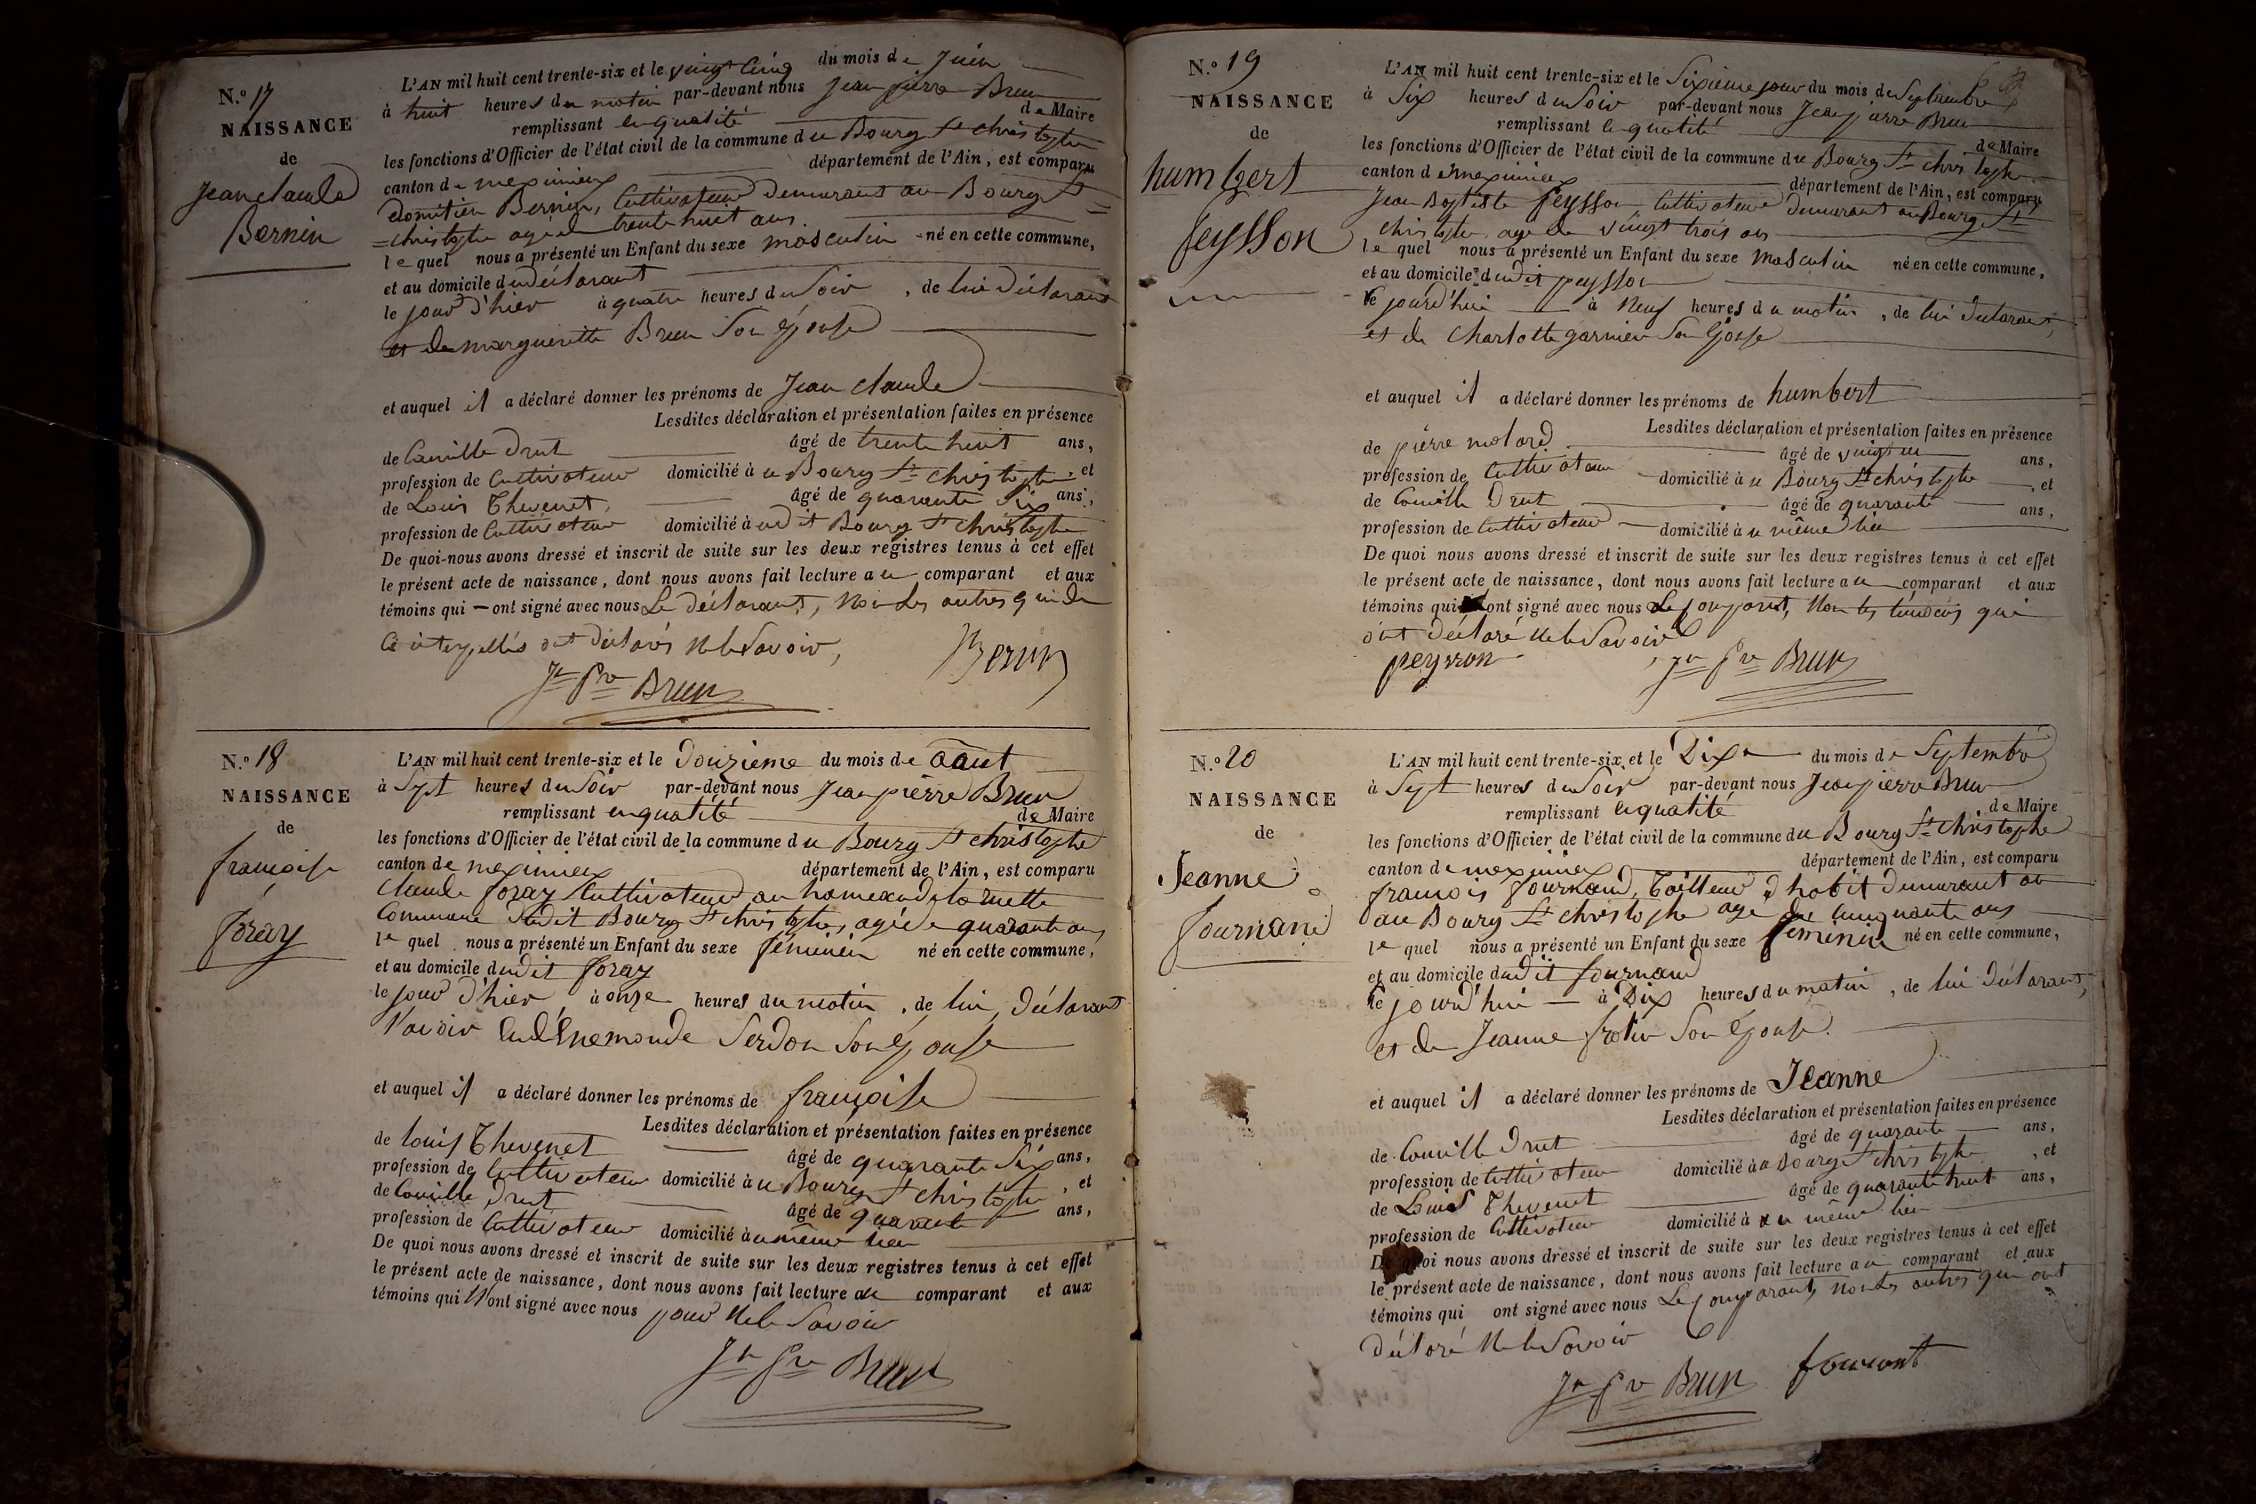 N.o 17
NAISSANCE
de
Jean claude
Bernin
L'AN mil huit cent trente-six et le vingt Cinq du mois de Juin
à huit heures du matin par-devant nous Jean pierre Brun
remplissant en qualité de Maire
les fonctions d'Officier de l'état civil de la commune du Bourg St christophe
canton de meximieux département de l'Ain, est comparu
domitien Bernin, Cultivateur demeurant au Bourg St
=christophe agé de trente huit ans.
le quel nous a présenté un Enfant du sexe masculin né en cette commune,
et au domicile du déclarant
le jour d'hier à quatre heures du Soir, de lui déclarant
et de margueritte Brun Son épouse
et auquel il a déclaré donner les prénoms de Jean claude
Lesdites déclaration et présentation faites en présence
de Camille Drut âgé de trente huit ans,
profession de Cultivateur domicilié à u Bourg St christophe, et
de Louis Thevenet, âgé de quarante Six ans,
profession de Cultivateur domicilié à udit Bourg St christophe
De quoi-nous avons dressé et inscrit de suite sur les deux registres tenus à cet effet
le présent acte de naissance, dont nous avons fait lecture au comparant et aux
témoins qui ont signé avec nous Le déclarant, Non les autres qui de
Ce interpellés ont déclarés Ne le Savoir,
Jn Pre Brun Bernin
N.o 18
NAISSANCE
de
françoise
foray
L'AN mil huit cent trente-six et le douzieme du mois de aout
à Sept heures du Soir par-devant nous Jean pierre Brun
remplissant en qualité de Maire
les fonctions d'Officier de l'état civil de la commune du Bourg St christophe
canton de meximieux département de l'Ain, est comparu
claude foray Cultivateur au hameau de la ruette
Commune dudit Bourg St christophe, agé de quarante ans
le quel nous a présenté un Enfant du sexe féminin né en cette commune,
et au domicile dudit foray
le jour d'hier, à onze heures du matin, de lui déclarant
l'avoir Eu d'Enemonde Serdon Son épouse
et auquel il a déclaré donner les prénoms de françoise
Lesdites déclaration et présentation faites en présence
de louis Thevenet âgé de quarante Six ans,
profession de Cultivateur domicilié à u Bourg St christophe, et
de Camille Drut âgé de quarante ans,
profession de Cultivateur domicilié à u même lieu
De quoi nous avons dressé et inscrit de suite sur les deux registres tenus à cet effet
le présent acte de naissance, dont nous avons fait lecture au comparant et aux
témoins qui N'ont signé avec nous pour Ne le Savoir
Jn Pre Brun
N.o 19
NAISSANCE
de
humbert
peysson
L'AN mil huit cent trente-six et le Sixieme jour du mois de Septembre
à Six heures du Soir par-devant nous Jean pierre Brun
remplissant en qualité de Maire
les fonctions d'Officier de l'état civil de la commune du Bourg St christophe
canton de meximieux département de l'Ain, est comparu
Jean Baptiste peysson Cultivateur demeurant au Bourg St
christophe agé de vingt trois ans
le quel nous a présenté un Enfant du sexe masculin né en cette commune,
et au domicile dudit peysson
le jourd'hui à Neuf heures du matin, de lui déclarant,
et de charlotte garnier Son Epouse
et auquel il a déclaré donner les prénoms de humbert
Lesdites déclaration et présentation faites en présence
de pierre molard âgé de vingt un ans,
profession de Cultivateur domicilié à u Bourg St christophe, et
de Camille Drut âgé de quarante ans,
profession de Cultivateur domicilié à u même lieu
De quoi nous avons dressé et inscrit de suite sur les deux registres tenus à cet effet
le présent acte de naissance, dont nous avons fait lecture au comparant et aux
témoins qui ont signé avec nous Le comparant, Non les témoins qui
ont déclaré Ne le Savoir
peysson Jn Pre Brun
N.o 20
NAISSANCE
de
Jeanne
fournand
L'AN mil huit cent trente-six et le Dix du mois de Septembre
à Sept heures du Soir par-devant nous Jean pierre Brun
remplissant en qualité de Maire
les fonctions d'Officier de l'état civil de la commune du Bourg St christophe
canton de meximieux département de l'Ain, est comparu
francois fournand, Tailleur d'habit demeurant au
au Bourg St christophe agé de Cinquante ans
le quel nous a présenté un Enfant du sexe feminin né en cette commune,
et au domicile dudit fournand
le jourd'hui à Dix heures du matin, de lui déclarant,
et de Jeanne Son épouse.
et auquel il a déclaré donner les prénoms de Jeanne
Lesdites déclaration et présentation faites en présence
de Camille Drut âgé de quarante ans,
profession de Cultivateur domicilié à u Bourg St christophe, et
de Louis Thevenet âgé de quarante huit ans,
profession de Cultivateur domicilié à u même lieu
De quoi nous avons dressé et inscrit de suite sur les deux registres tenus à cet effet
le présent acte de naissance, dont nous avons fait lecture au comparant et aux
témoins qui ont signé avec nous Le comparant, Non les autres qui ont
déclaré Ne le Savoir
Jn Pre Brun